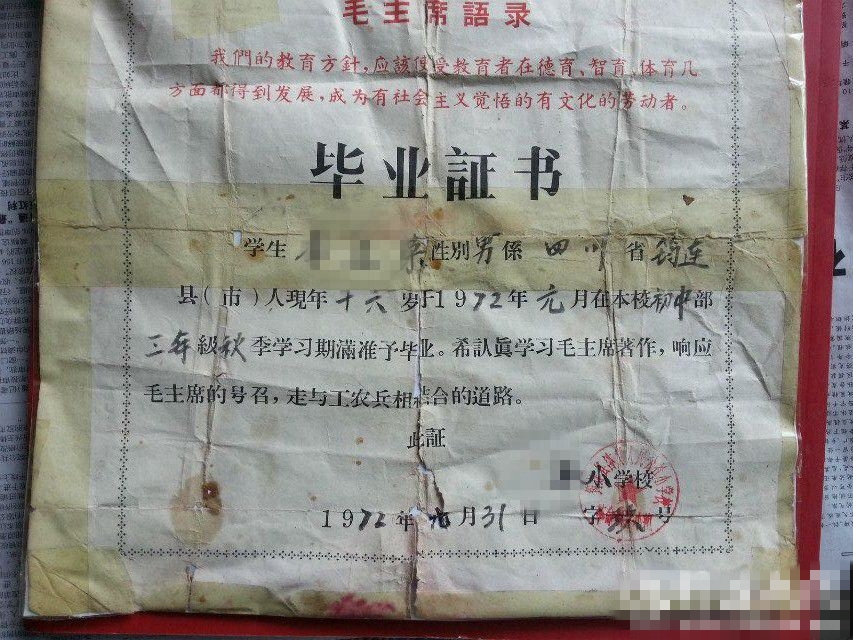 毛主席語录
我們的教育方針,应該使受教育者在德育、智育、体育几
方面都得到发展,成为有社会主义觉悟的有文化的劳动者。
毕业証书
学生 性別男係四川省筠连
县(市)人現年十六岁于1972年元月在本校初中部
三年級秋季学习期滿准予毕业。希認真学习毛主席著作,响应
毛主席的号召,走与工农兵相結合的道路。
此証
小学校
1972年元月31日 字 号